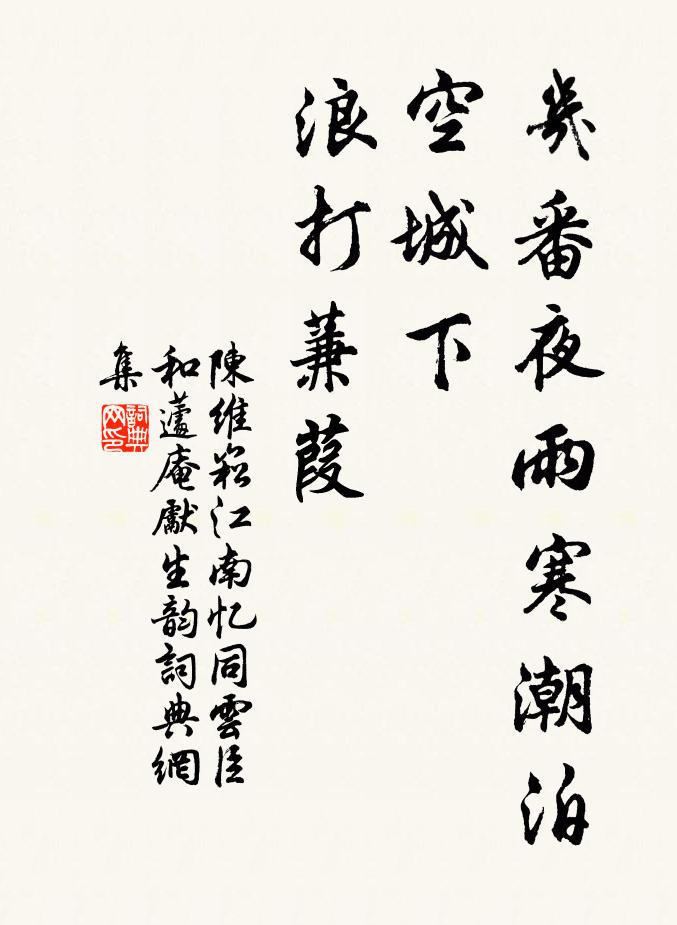 幾番夜雨寒潮泊
空城下
浪打蒹葭
陳維崧江南忆同雲臣
和蘧庵獻生韵詞典網
集
詞典网印